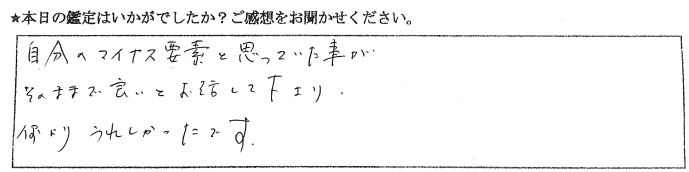 ★本日の鑑定はいかがでしたか？ご感想をお聞かせください。
自分のマイナス要素と思っていた事が
そのままで良いとお話して下さり、
何より うれしかったです。